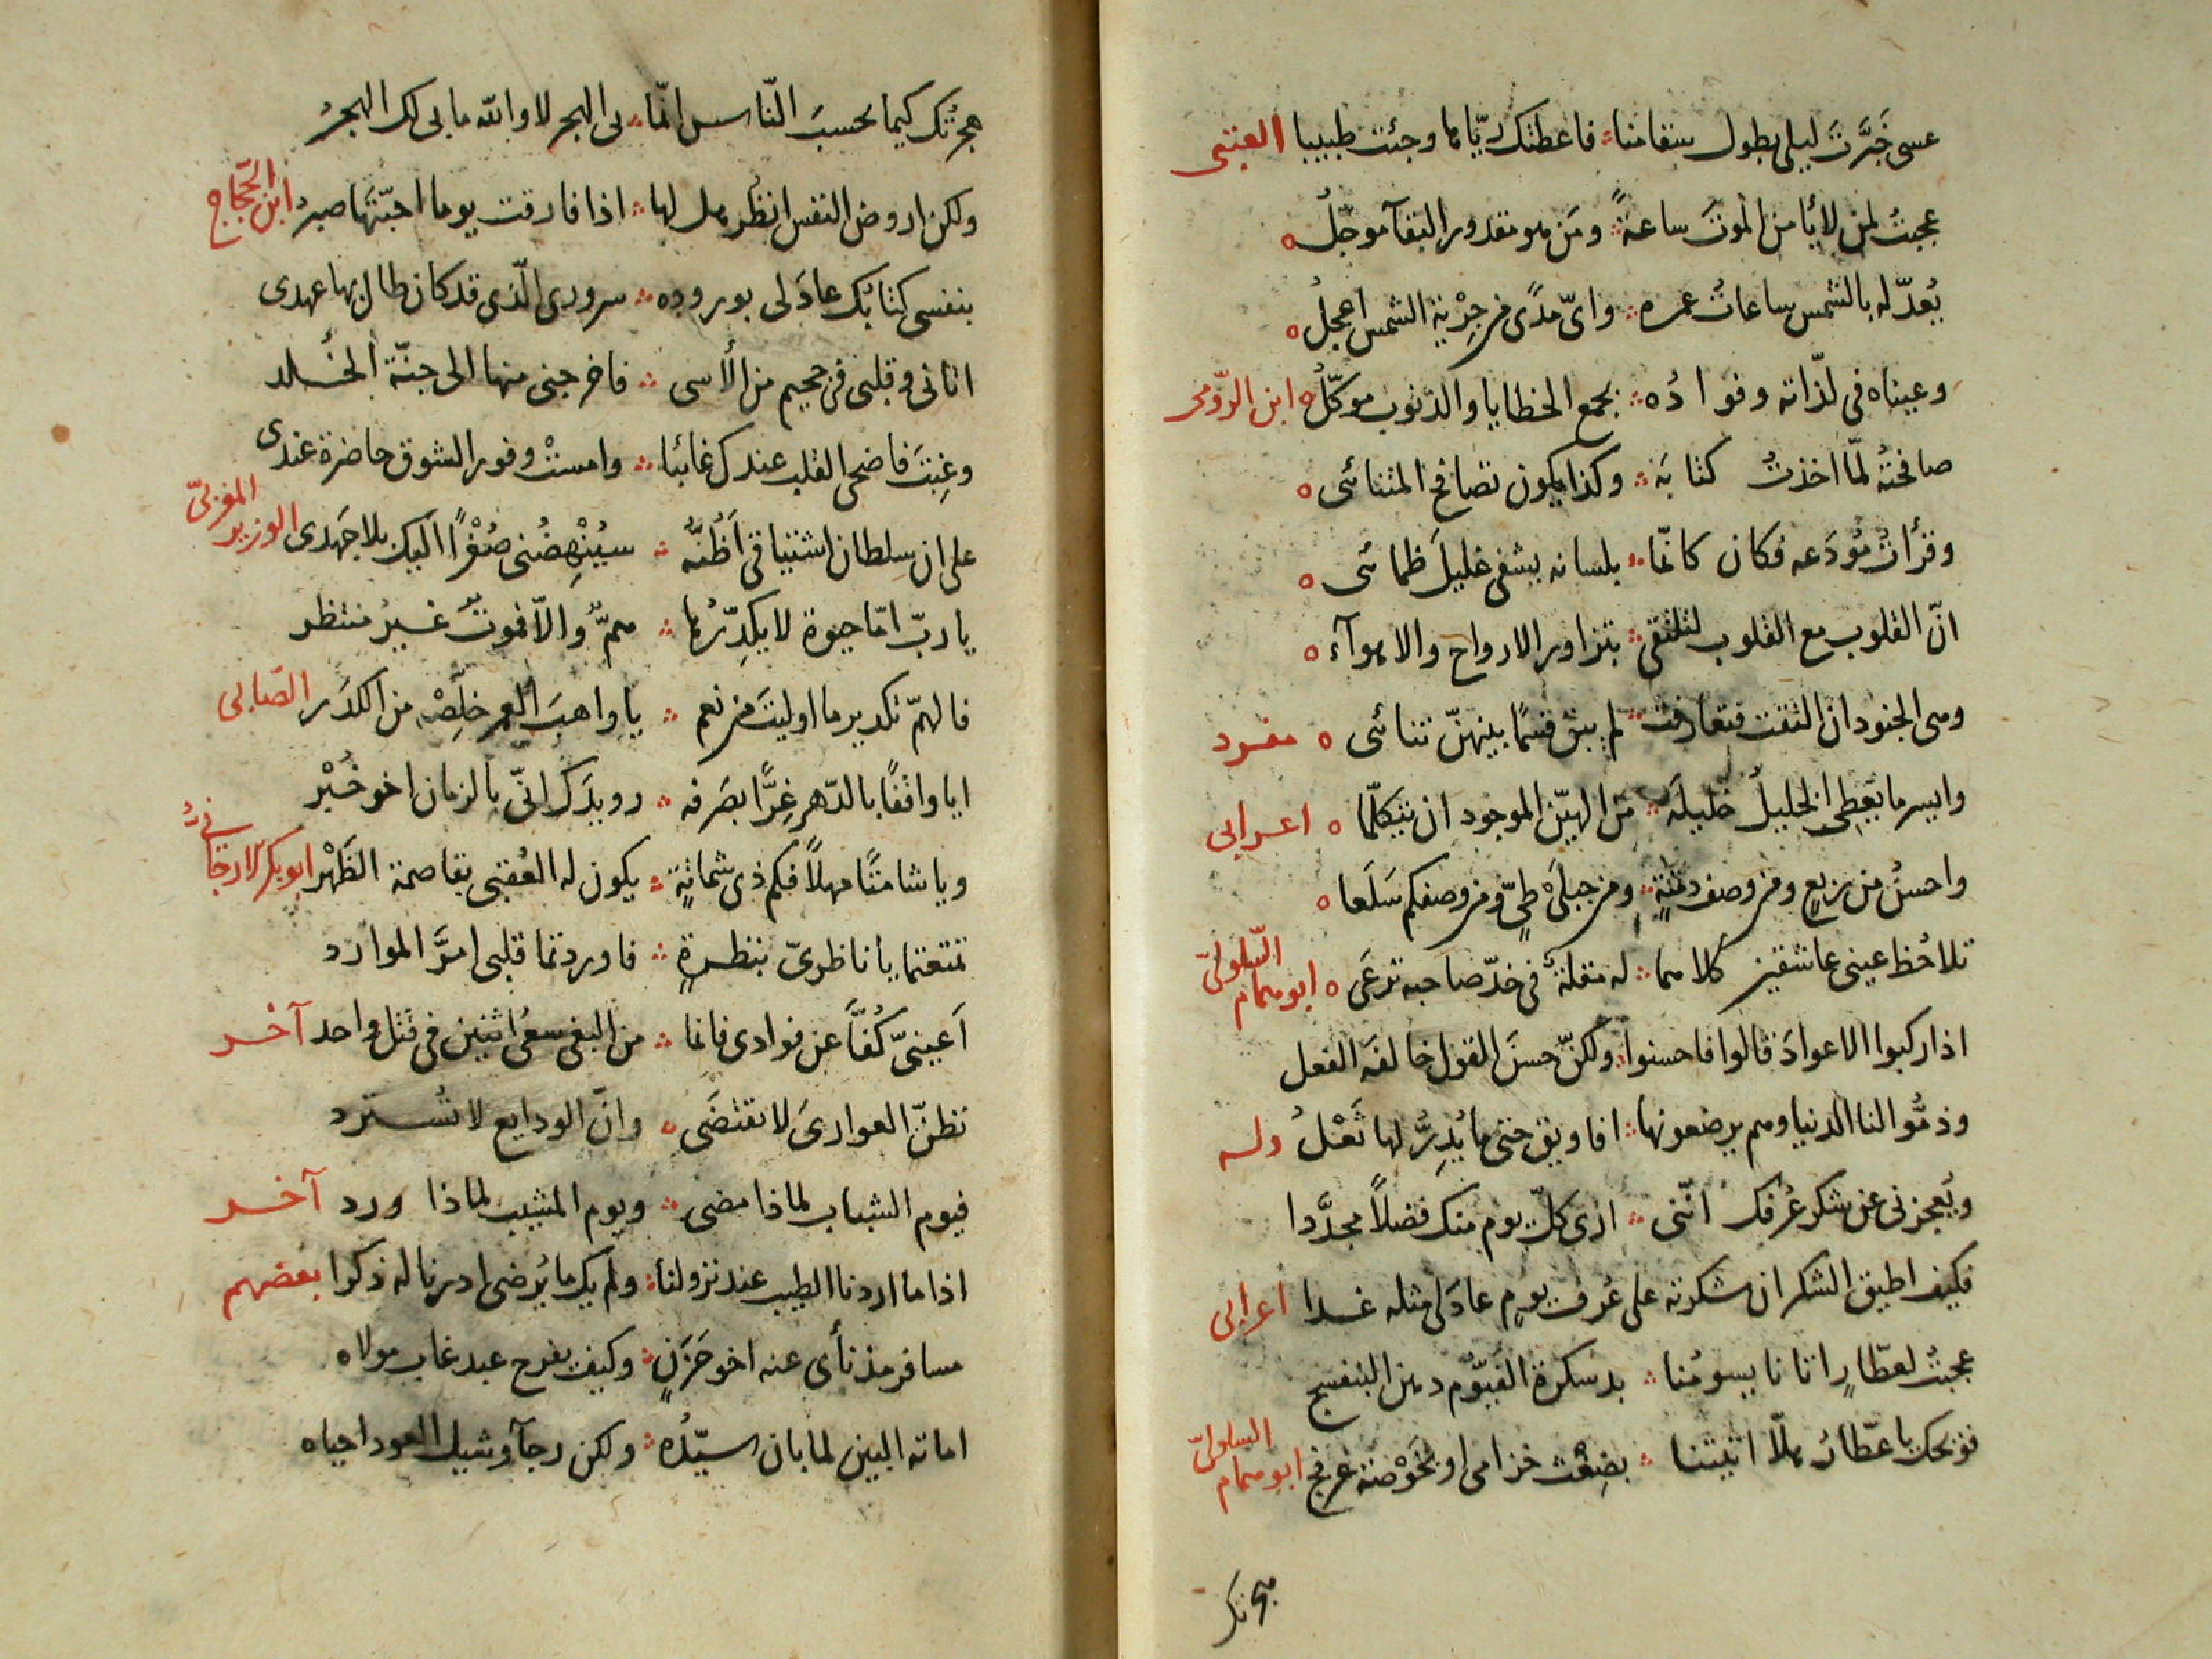 عسى خَبَّرتَ ليلى بطول سقامنا فاعطتك ريّاها وجئت طبيبا العتبى
عجبتُ لمن لا يأمن الموتَ ساعةً ومَن هو مقدور البقآ موجّلُ
يُعدّ له بالشمس ساعاتُ عمره واىّ مدًى من جِرْية الشمس اعجلُ
وعيناه فى لذّاته وفوادُه بجمع الخطايا والذنوب موكّلُ ابن الرّومى
صافحتُه لمّا اخذتُ كتابَه وكذا يكون تصافح المتنائى
وقرأتُ مُودَعه فكان كانّما بلسانه يشفى غليلَ ظمائى
انّ القلوب مع القلوب لتلتقى بتزاور الارواح والاهوآء
وهى الجنود ان التقت فتعارفت لم يبق قسمًا بينهنّ تنائى مفرد
وايسر ما يعطى الخليلُ خليلَه من الهيّن الموجود ان يتكلّما اعرابى
واحسنُ من ربعٍ ومن وصف دمنةٍ ومن جبلَىْ طىٍّ ومن وصفكم سَلَعا
تلاحُظ عينى عاشقين كلاهما له مقلةٌ فى خدّ صاحبه ترعَى ابو همام السّلولىّ
اذا ركبوا الاعوادَ قالوا فاحسنوا ولكنّ حسنَ القول خالفَه الفعل
وذمُّوا لنا الدنيا وهم يرضعونها افاويق حتى ما يُدِرُّ لها ثَعْلُ وله
ويُعجزنى عن شكر عُرفك انّنى ارى كلّ يوم منك فضلاً مجدَّدا
فكيف اطيق الشكر ان شكرته على عُرف يومٍ عادَ لى مثله غدا اعرابى
عجبتُ لعطّارٍ اتانا يسومُنا بدسكرة الفيّوم دهن البنفسج
فويحك يا عطّارُ هلّا اتيتنا بضِغْث خزامى او بخَوْصة عرفج ابو همام السلولىّ
هجرتك
هجرتُك كيما يحسبَ النّاس انّما بى الهجر لا والله ما بى لك الهجرُ
ولكن اروض النفس انظر هل لها اذا فارقت يوما احبّتها صبرُ ابن الحجّاج
بنفسى كتابُك عادَ لى بوروده سرورى الّذى قد كان طال بها عهدى
اتانى وقلبى فى جحيم من الأسى فاخرجنى منها الى جنّة الخُلد
وغِبتَ فاضحى القلب عندك غائبا وامستْ وفور الشوق حاضرة عندى
على ان سلطان اشتياقى اَظُنُّه سيُنْهِضُنى صُغْرًا اليك بلا جَهدى الوزير المغربىّ
يا ربّ امّا حيوة لا يكدِّرُها همٌّ والّا فموتٌ غيرُ منتظر
فالهمّ تكدير ما اوليتَ من نعم يا واهبَ العمر خلِّصْه من الكدَر الصّابى
ايا واقفًا بالدّهر غِرًّا بصَرفه رويدَك انّى بالزمان اخو خُبْر
ويا شامتًا مهلاً فكم ذى شماتةٍ يكون له العُقبى بقاصمة الظَهْر ابو بكر الارجانىّ
تمتعتما يا ناظرىّ بنظرةٍ فاوردتما قلبى امرَّ الموارد
اَعينىّ كُفَّا عن فوادى فانما من البغى سعىُ اثنين فى قتل واحد آخر
تظنّ العوارىَ لا تقتضَى وانّ الودايع لا تُسترد
فيوم الشباب لماذا مضى ويوم المشيب لماذا ورد آخر
اذا ما اردنا الطيب عند نزولنا ولم يك ما يُرضى ادرنا له ذكرا بعضهم
مسافر مذ نأى عنه اخو حَزَنٍ وكيف يفرح عبد غاب مولاه
اماته البين لما بان سيّدُه ولكن رجآ وشيك العود احياه